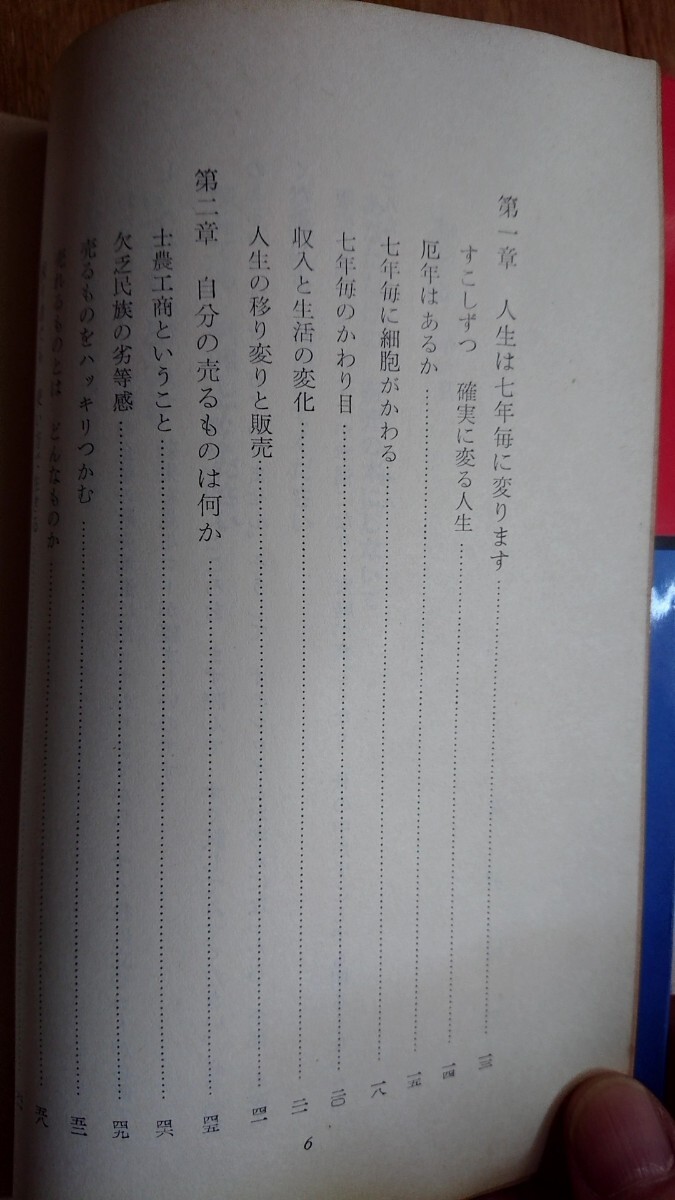 第一章　人生は七年毎に変ります……一三
すこしずつ　確実に変る人生……一四
厄年はあるか……一五
七年毎に細胞がかわる……一八
七年毎のかわり目……二〇
収入と生活の変化……二一
人生の移り変りと販売……四一
第二章　自分の売るものは何か……四五
士農工商ということ……四六
欠乏民族の劣等感……四九
売るものをハッキリつかむ……五二
売れるものとは　どんなものか……五八
6